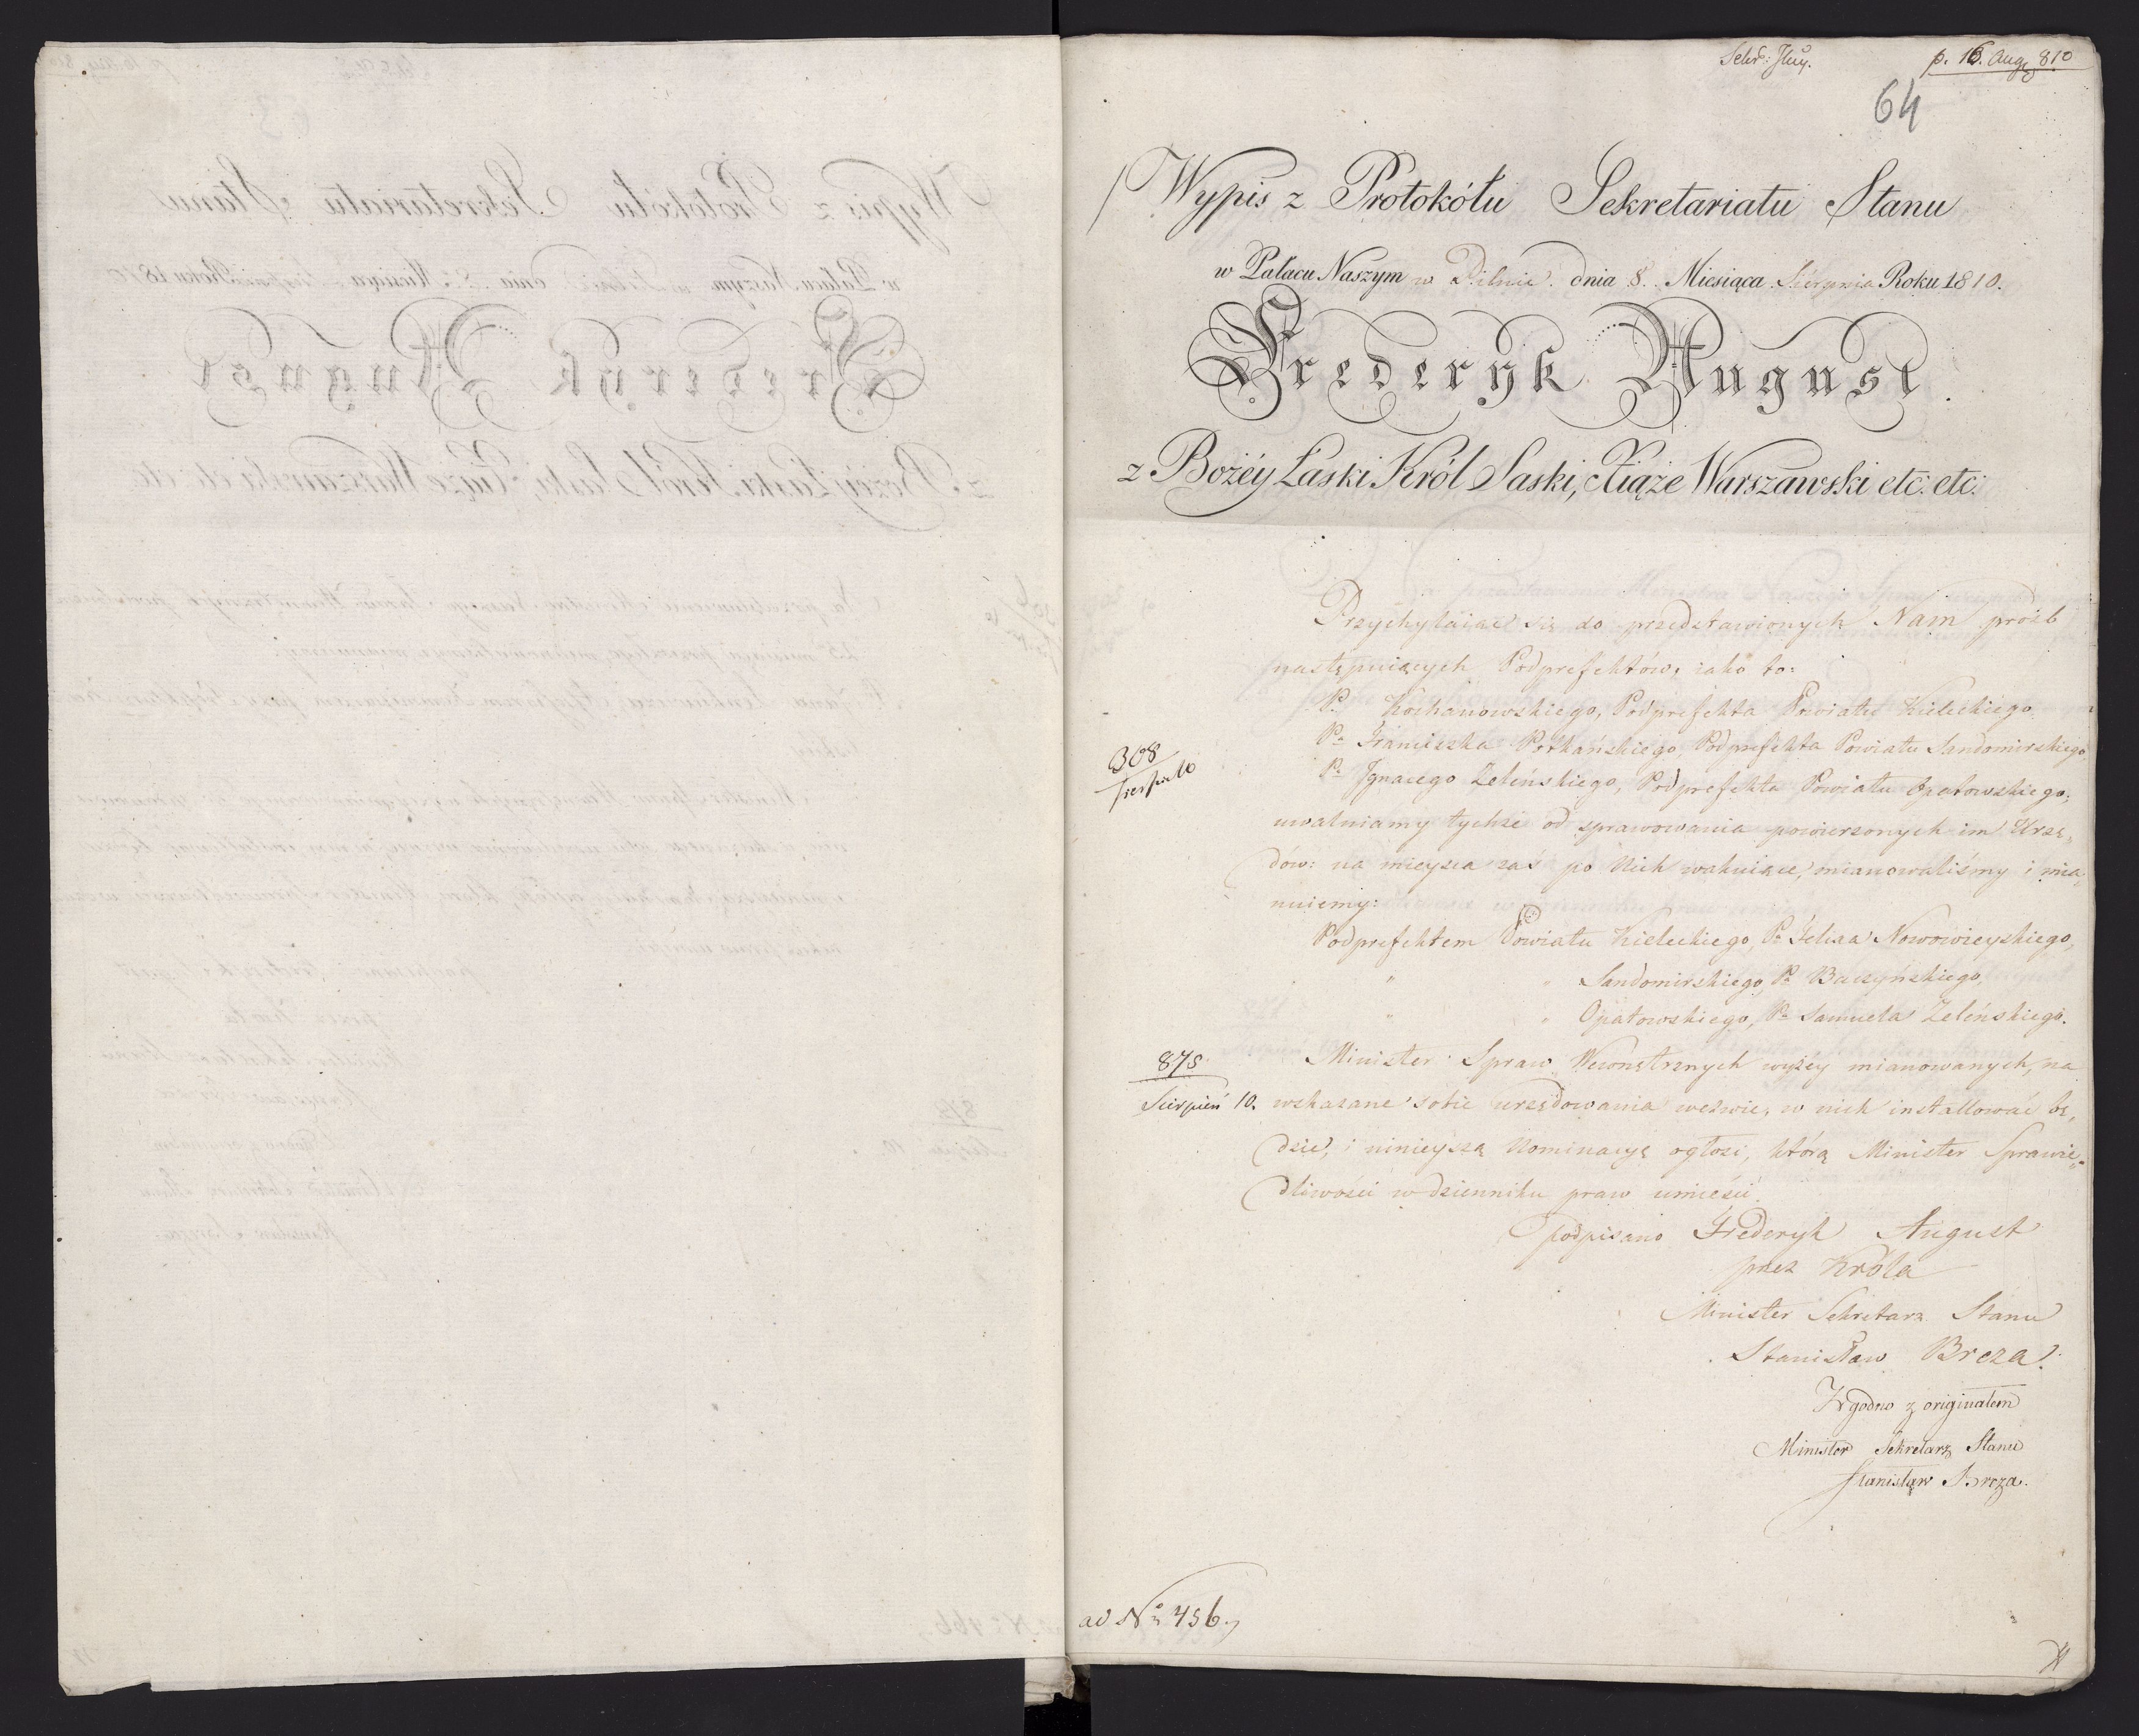 p. 16. Aug. 810
64
Wypis z Protokółu Sekretariatu Stanu
w Pałacu Naszym w Pilnic. dnia 8. Miesiąca Sierpnia Roku 1810.
Frederyk August
z Bożéy Łaski Król Saski, Xiąże Warszawski etc. etc.
Przychylaiąc się do przedstawionych Nam próźb
następuiących Podprefektów, iako to:
P. Kochanowskiego, Podprefekta Powiatu Kieleckiego
Pa Franciszka Potkańskiego Podprefekta Powiatu Sandomirskiego
Pa Ignacego Zeleńskiego, Podprefekta Powiatu Opatowskiego;
308
uwalniamy tychże od sprawowania powierzonych im Urzę„
dów: na mieysca zaś po Nich wakuiące, mianowaliśmy i mia„
nuiemy:
Podprefektem Powiatu Kieleckiego, Pa Felixa Nowowieyskiego,
" " Sandomirskiego, Pa Baczyńskiego,
" " Opatowskiego, Pa Samuela Zeleńskiego.
875
Sierpień 10.
Minister Spraw Wewnętrznych wyżéy mianowanych, na
wskazane sobie urzędowania wezwie, w nich installować bę„
dzie, i ninieyszą Nominacyę ogłosi, którą Minister Sprawie„
dliwości w dzienniku praw umieści.
podpisano Frederyk August
przez Króla
Minister Sekretarz Stanu
Stanisław Breza.
Zgodno z originałem
Minister Sekretarz Stanu
Stanisław Breza.
ad No 456.